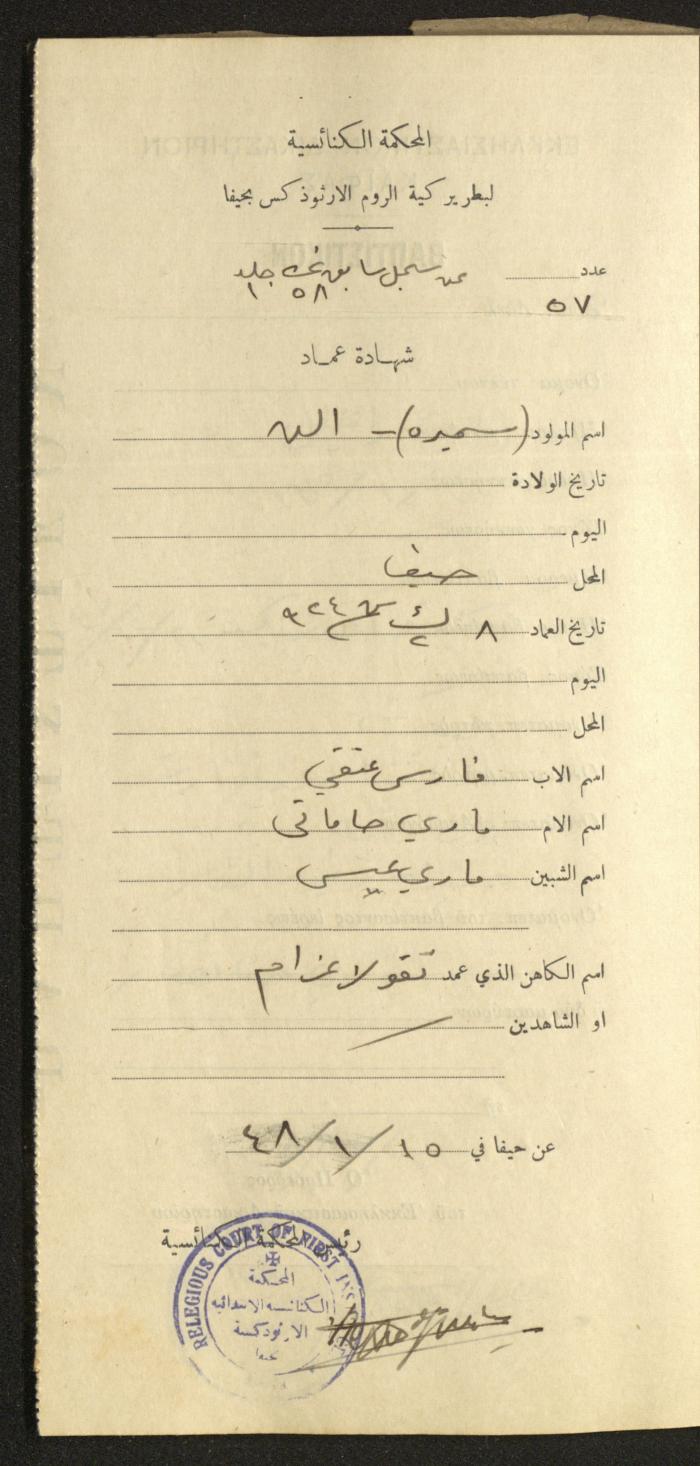 المحكمة الكنائسية
لبطريركية الروم الارثوذكس بحيفا
عدد ٥٧ عن سجل سابق جلد
٥٨ ١
شهادة عماد
اسم المولود (سميره) –
تاريخ الولادة
اليوم
المحل حيفا
تاريخ العماد ٨ ك٢ ٩٢٤
اليوم
المحل
اسم الاب فارس عتقي
اسم الام ماري حاماتي
اسم الشبين ماري عيسى
اسم الكاهن الذي عمد نقولا عزام
او الشاهدين
عن حيفا في ١٥/١/٤٨
رئيس المحكمة الكنائسية
RELEGIOUS COURT OF FIRST INS
المحكمة
الكنائسية الابتدائية
الارثوذكسية
حيفا